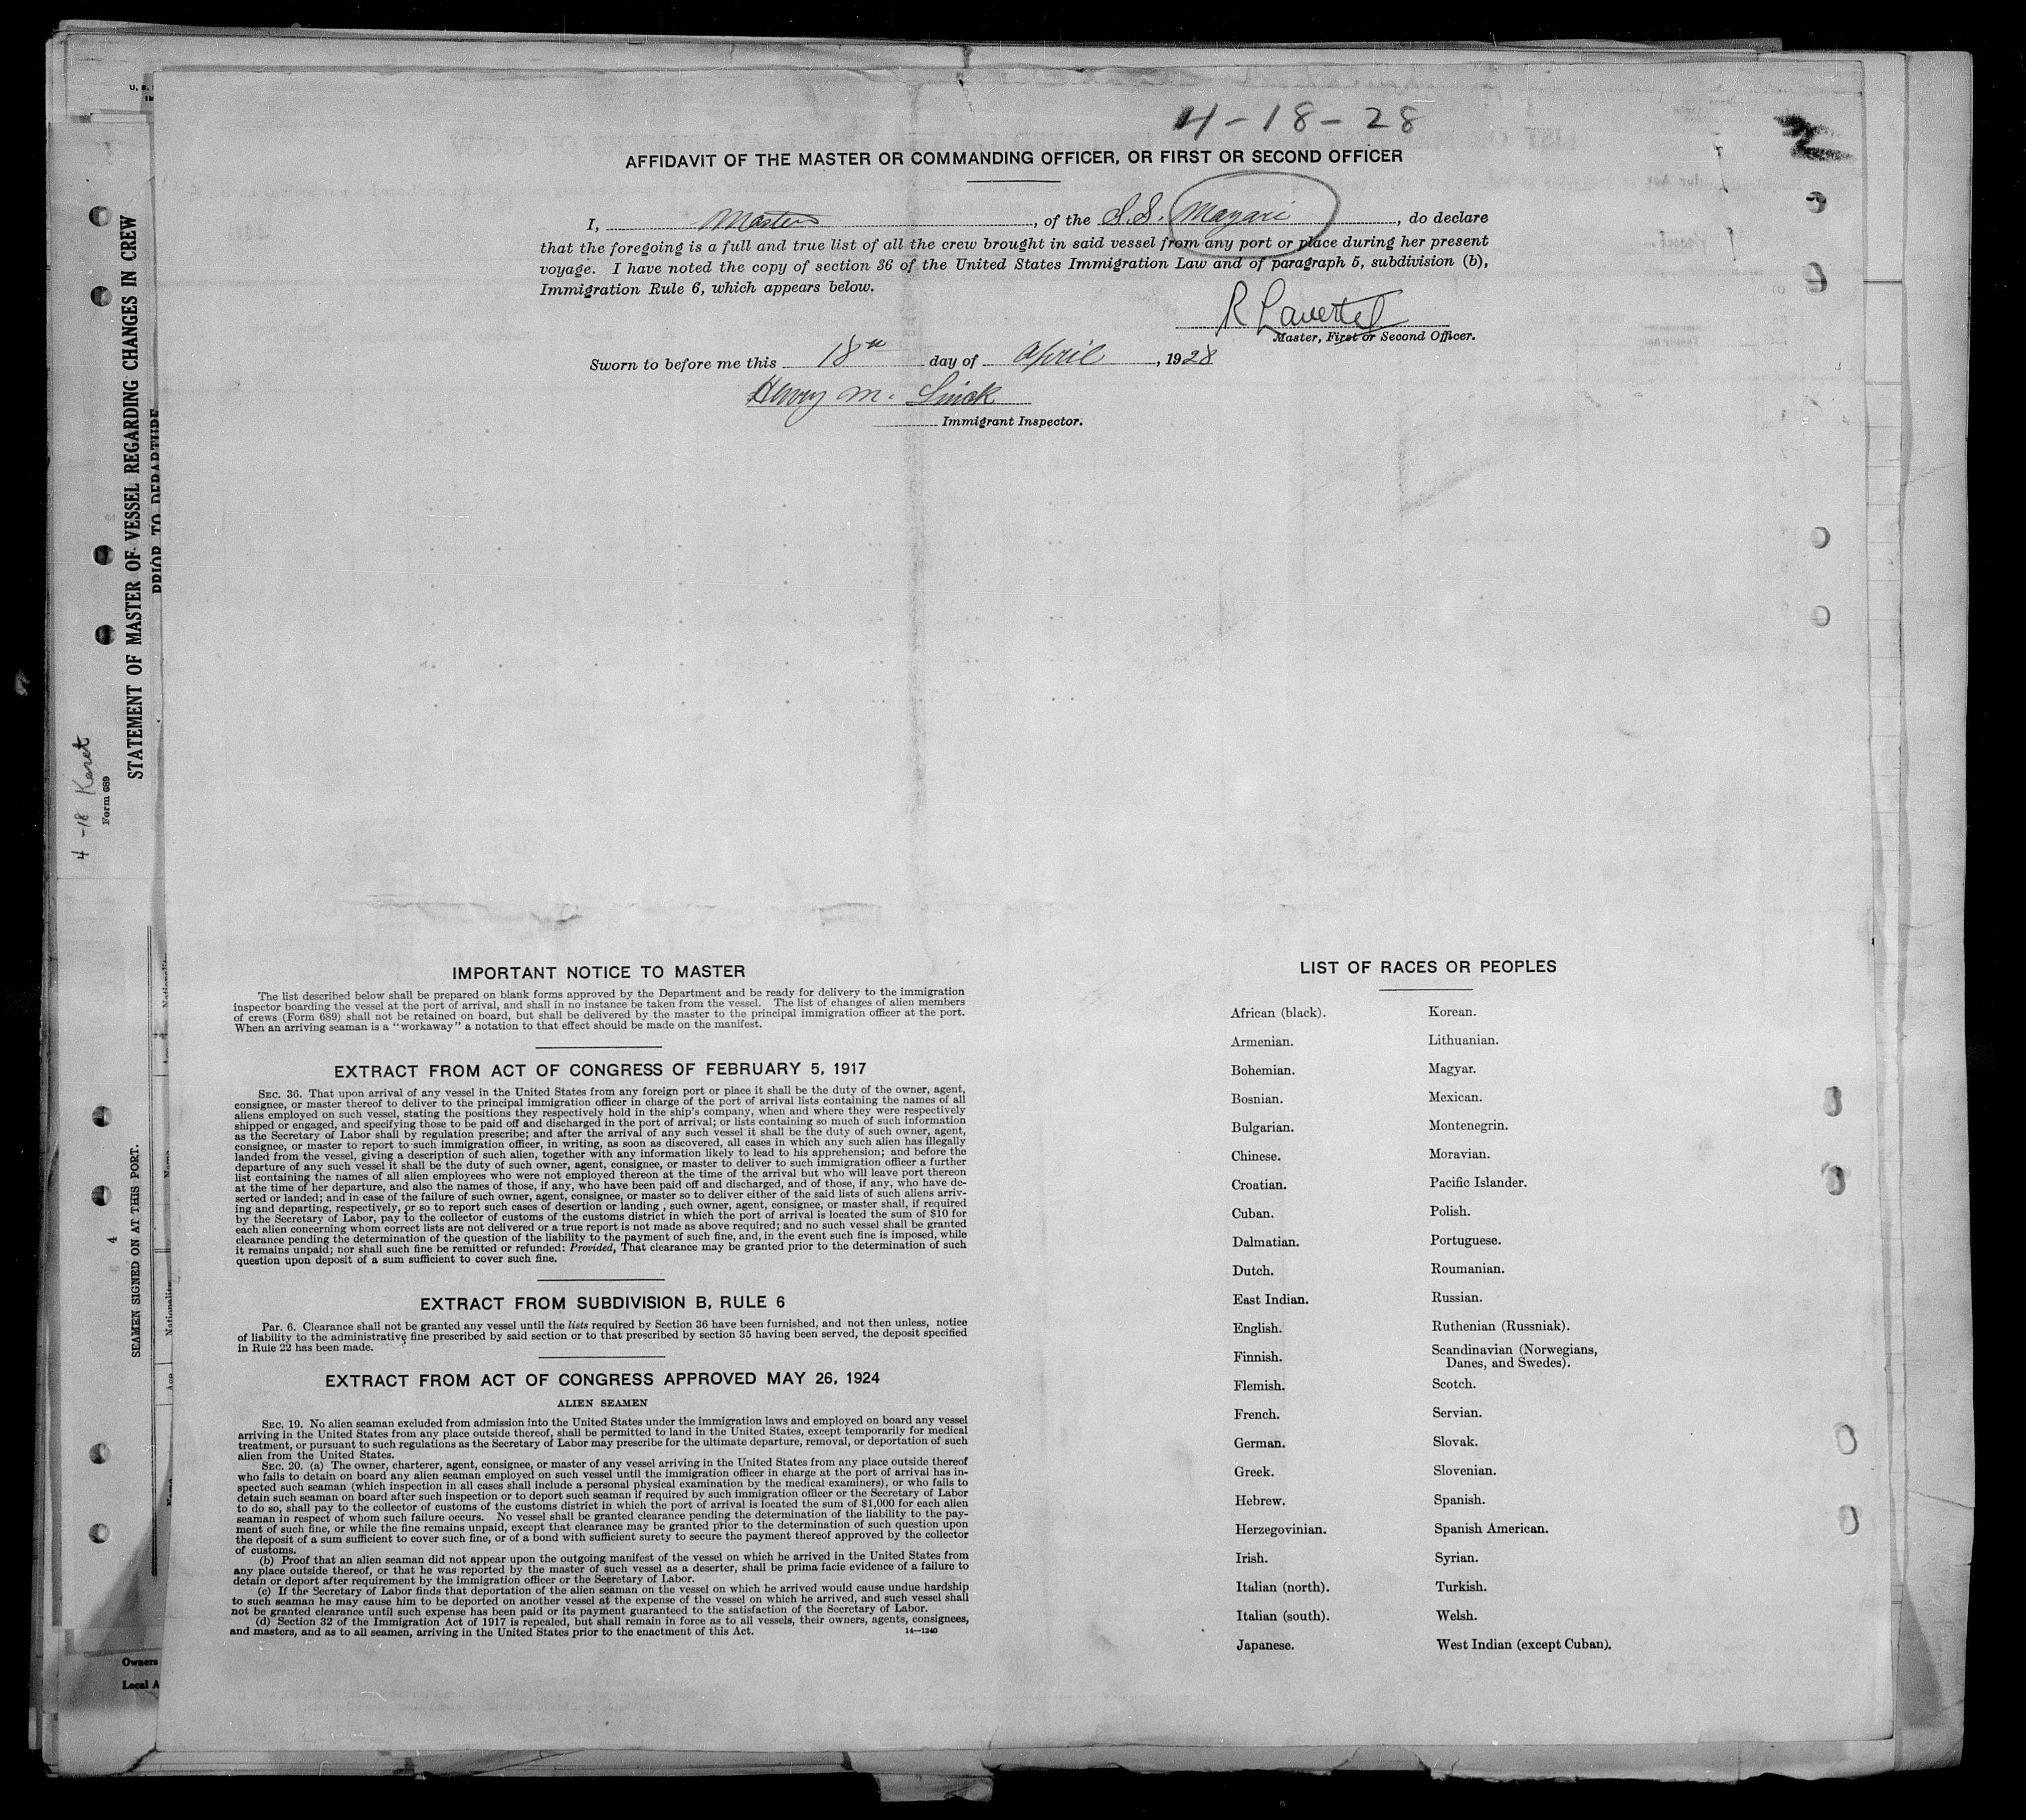 4-18-28
AFFIDAVIT OF THE MASTER OR COMMANDING OFFICER, OR FIRST OR SECOND OFFICER
I, Master, of the S.S. Mayari, do declare
that the foregoing is a full and true list of all the crew brought in said vessel from any port or place during her present
voyage. I have noted the copy of section 36 of the United States Immigration Law and of paragraph 5, subdivision (b),
Immigration Rule 6, which appears below.
R
Master, First or Second Officer.
Sworn to before me this 18th day of April, 1928
Henry M.
Immigrant Inspector.
IMPORTANT NOTICE TO MASTER
The list described below shall be prepared on blank forms approved by the Department and be ready for delivery to the immigration
inspector boarding the vessel at the port of arrival, and shall in no instance be taken from the vessel. The list of changes of alien members
of crews (Form 689) shall not be retained on board, but shall be delivered by the master to the principal immigration officer at the port.
When an arriving seaman is a "workaway" a notation to that effect should be made on the manifest.
EXTRACT FROM ACT OF CONGRESS OF FEBRUARY 5, 1917
SEC. 36. That upon arrival of any vessel in the United States from any foreign port or place it shall be the duty of the owner, agent,
consignee, or master thereof to deliver to the principal immigration officer in charge of the port of arrival lists containing the names of all
aliens employed on such vessel, stating the positions they respectively hold in the ship's company, when and where they were respectively
shipped or engaged, and specifying those to be paid off and discharged in the port of arrival; or lists containing so much of such information
as the Secretary of Labor shall by regulation prescribe; and after the arrival of any such vessel it shall be the duty of such owner, agent,
consignee, or master to report to such immigration officer, in writing, as soon as discovered, all cases in which any such alien has illegally
landed from the vessel, giving a description of such alien, together with any information likely to lead to his apprehension; and before the
departure of any such vessel it shall be the duty of such owner, agent, consignee, or master to deliver to such immigration officer a further
list containing the names of all alien employees who were not employed thereon at the time of the arrival but who will leave port thereon
at the time of her departure, and also the names of those, if any, who have been paid off and discharged, and of those, if any, who have de-
serted or landed; and in case of the failure of such owner, agent, consignee, or master so to deliver either of the said lists of such aliens arriv-
ing and departing, respectively, or so to report such cases of desertion or landing , such owner, agent, consignee, or master shall, if required
by the Secretary of Labor, pay to the collector of customs of the customs district in which the port of arrival is located the sum of $10 for
each alien concerning whom correct lists are not delivered or a true report is not made as above required; and no such vessel shall be granted
clearance pending the determination of the question of the liability to the payment of such fine, and, in the event such fine is imposed, while
it remains unpaid; nor shall such fine be remitted or refunded: Provided, That clearance may be granted prior to the determination of such
question upon deposit of a sum sufficient to cover such fine.
EXTRACT FROM SUBDIVISION B, RULE 6
Par. 6. Clearance shall not be granted any vessel until the lists required by Section 36 have been furnished, and not then unless, notice
of liability to the administrative fine prescribed by said section or to that prescribed by section 35 having been served, the deposit specified
in Rule 22 has been made.
EXTRACT FROM ACT OF CONGRESS APPROVED MAY 26, 1924
ALIEN SEAMEN
SEC. 19. No alien seaman excluded from admission into the United States under the immigration laws and employed on board any vessel
arriving in the United States from any place outside thereof, shall be permitted to land in the United States, except temporarily for medical
treatment, or pursuant to such regulations as the Secretary of Labor may prescribe for the ultimate departure, removal, or deportation of such
alien from the United States.
SEC. 20. (a) The owner, charterer, agent, consignee, or master of any vessel arriving in the United States from any place outside thereof
who fails to detain on board any alien seaman employed on such vessel until the immigration officer in charge at the port of arrival has in-
spected such seaman (which inspection in all cases shall include a personal physical examination by the medical examiners), or who fails to
detain such seaman on board after such inspection or to deport such seaman if required by such immigration officer or the Secretary of Labor
to do so, shall pay to the collector of customs of the customs district in which the port of arrival is located the sum of $1,000 for each alien
seaman in respect of whom such failure occurs. No vessel shall be granted clearance pending the determination of the liability to the pay-
ment of such fine, or while the fine remains unpaid, except that clearance may be granted prior to the determination of such question upon
the deposit of a sum sufficient to cover such fine, or of a bond with sufficient surety to secure the payment thereof approved by the collector
of customs.
(b) Proof that an alien seaman did not appear upon the outgoing manifest of the vessel on which he arrived in the United States from
any place outside thereof, or that he was reported by the master of such vessel as a deserter, shall be prima facie evidence of a failure to
detain or deport after requirement by the immigration officer or the Secretary of Labor.
(c) If the Secretary of Labor finds that deportation of the alien seaman on the vessel on which he arrived would cause undue hardship
to such seaman he may cause him to be deported on another vessel at the expense of the vessel on which he arrived, and such vessel shall
not be granted clearance until such expense has been paid or its payment guaranteed to the satisfaction of the Secretary of Labor.
(d) Section 32 of the Immigration Act of 1917 is repealed, but shall remain in force as to all vessels, their owners, agents, consignees,
and masters, and as to all seamen, arriving in the United States prior to the enactment of this Act.
14—1240
LIST OF RACES OR PEOPLES
African (black).
Armenian.
Bohemian.
Bosnian.
Bulgarian.
Chinese.
Croatian.
Cuban.
Dalmatian.
Dutch.
East Indian.
English.
Finnish.
Flemish.
French.
German.
Greek.
Hebrew.
Herzegovinian.
Irish.
Italian (north).
Italian (south).
Japanese.
Korean.
Lithuanian.
Magyar.
Mexican.
Montenegrin.
Moravian.
Pacific Islander.
Polish.
Portuguese.
Roumanian.
Russian.
Ruthenian (Russniak).
Scandinavian (Norwegians,
Danes, and Swedes).
Scotch.
Servian.
Slovak.
Slovenian.
Spanish.
Spanish American.
Syrian.
Turkish.
Welsh.
West Indian (except Cuban).
4-18
Form 689
STATEMENT OF MASTER OF VESSEL REGARDING CHANGES IN CREW
PRIOR TO DEPARTURE
4
SEAMEN SIGNED ON AT THIS PORT.
Owners
Local A